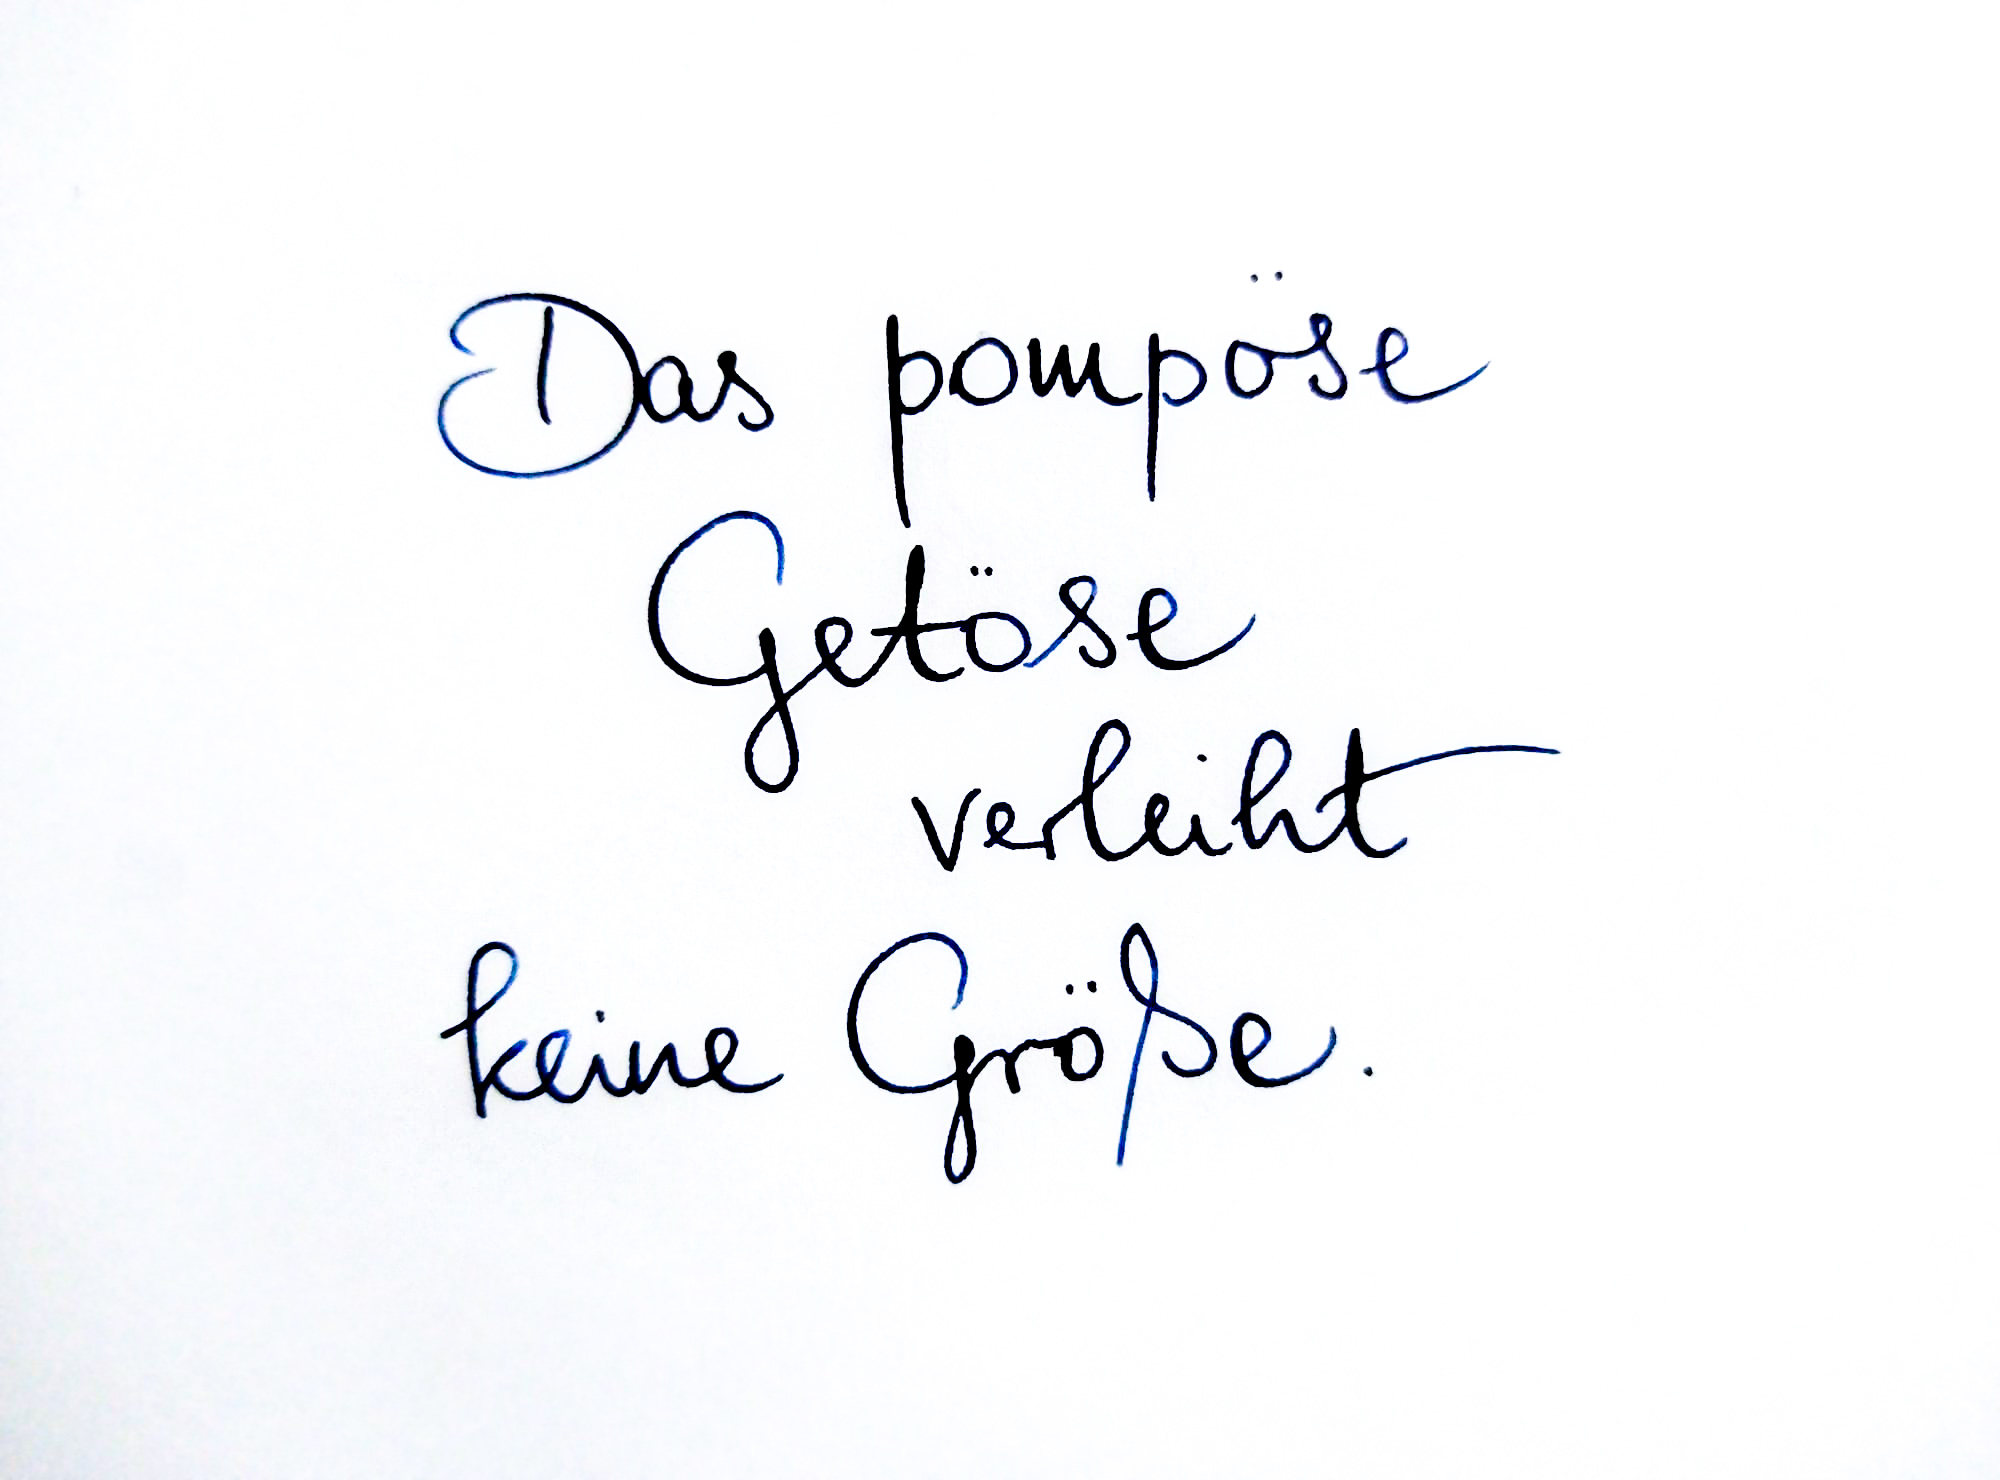 Das pompöse
Getöse
verleiht
keine Größe.